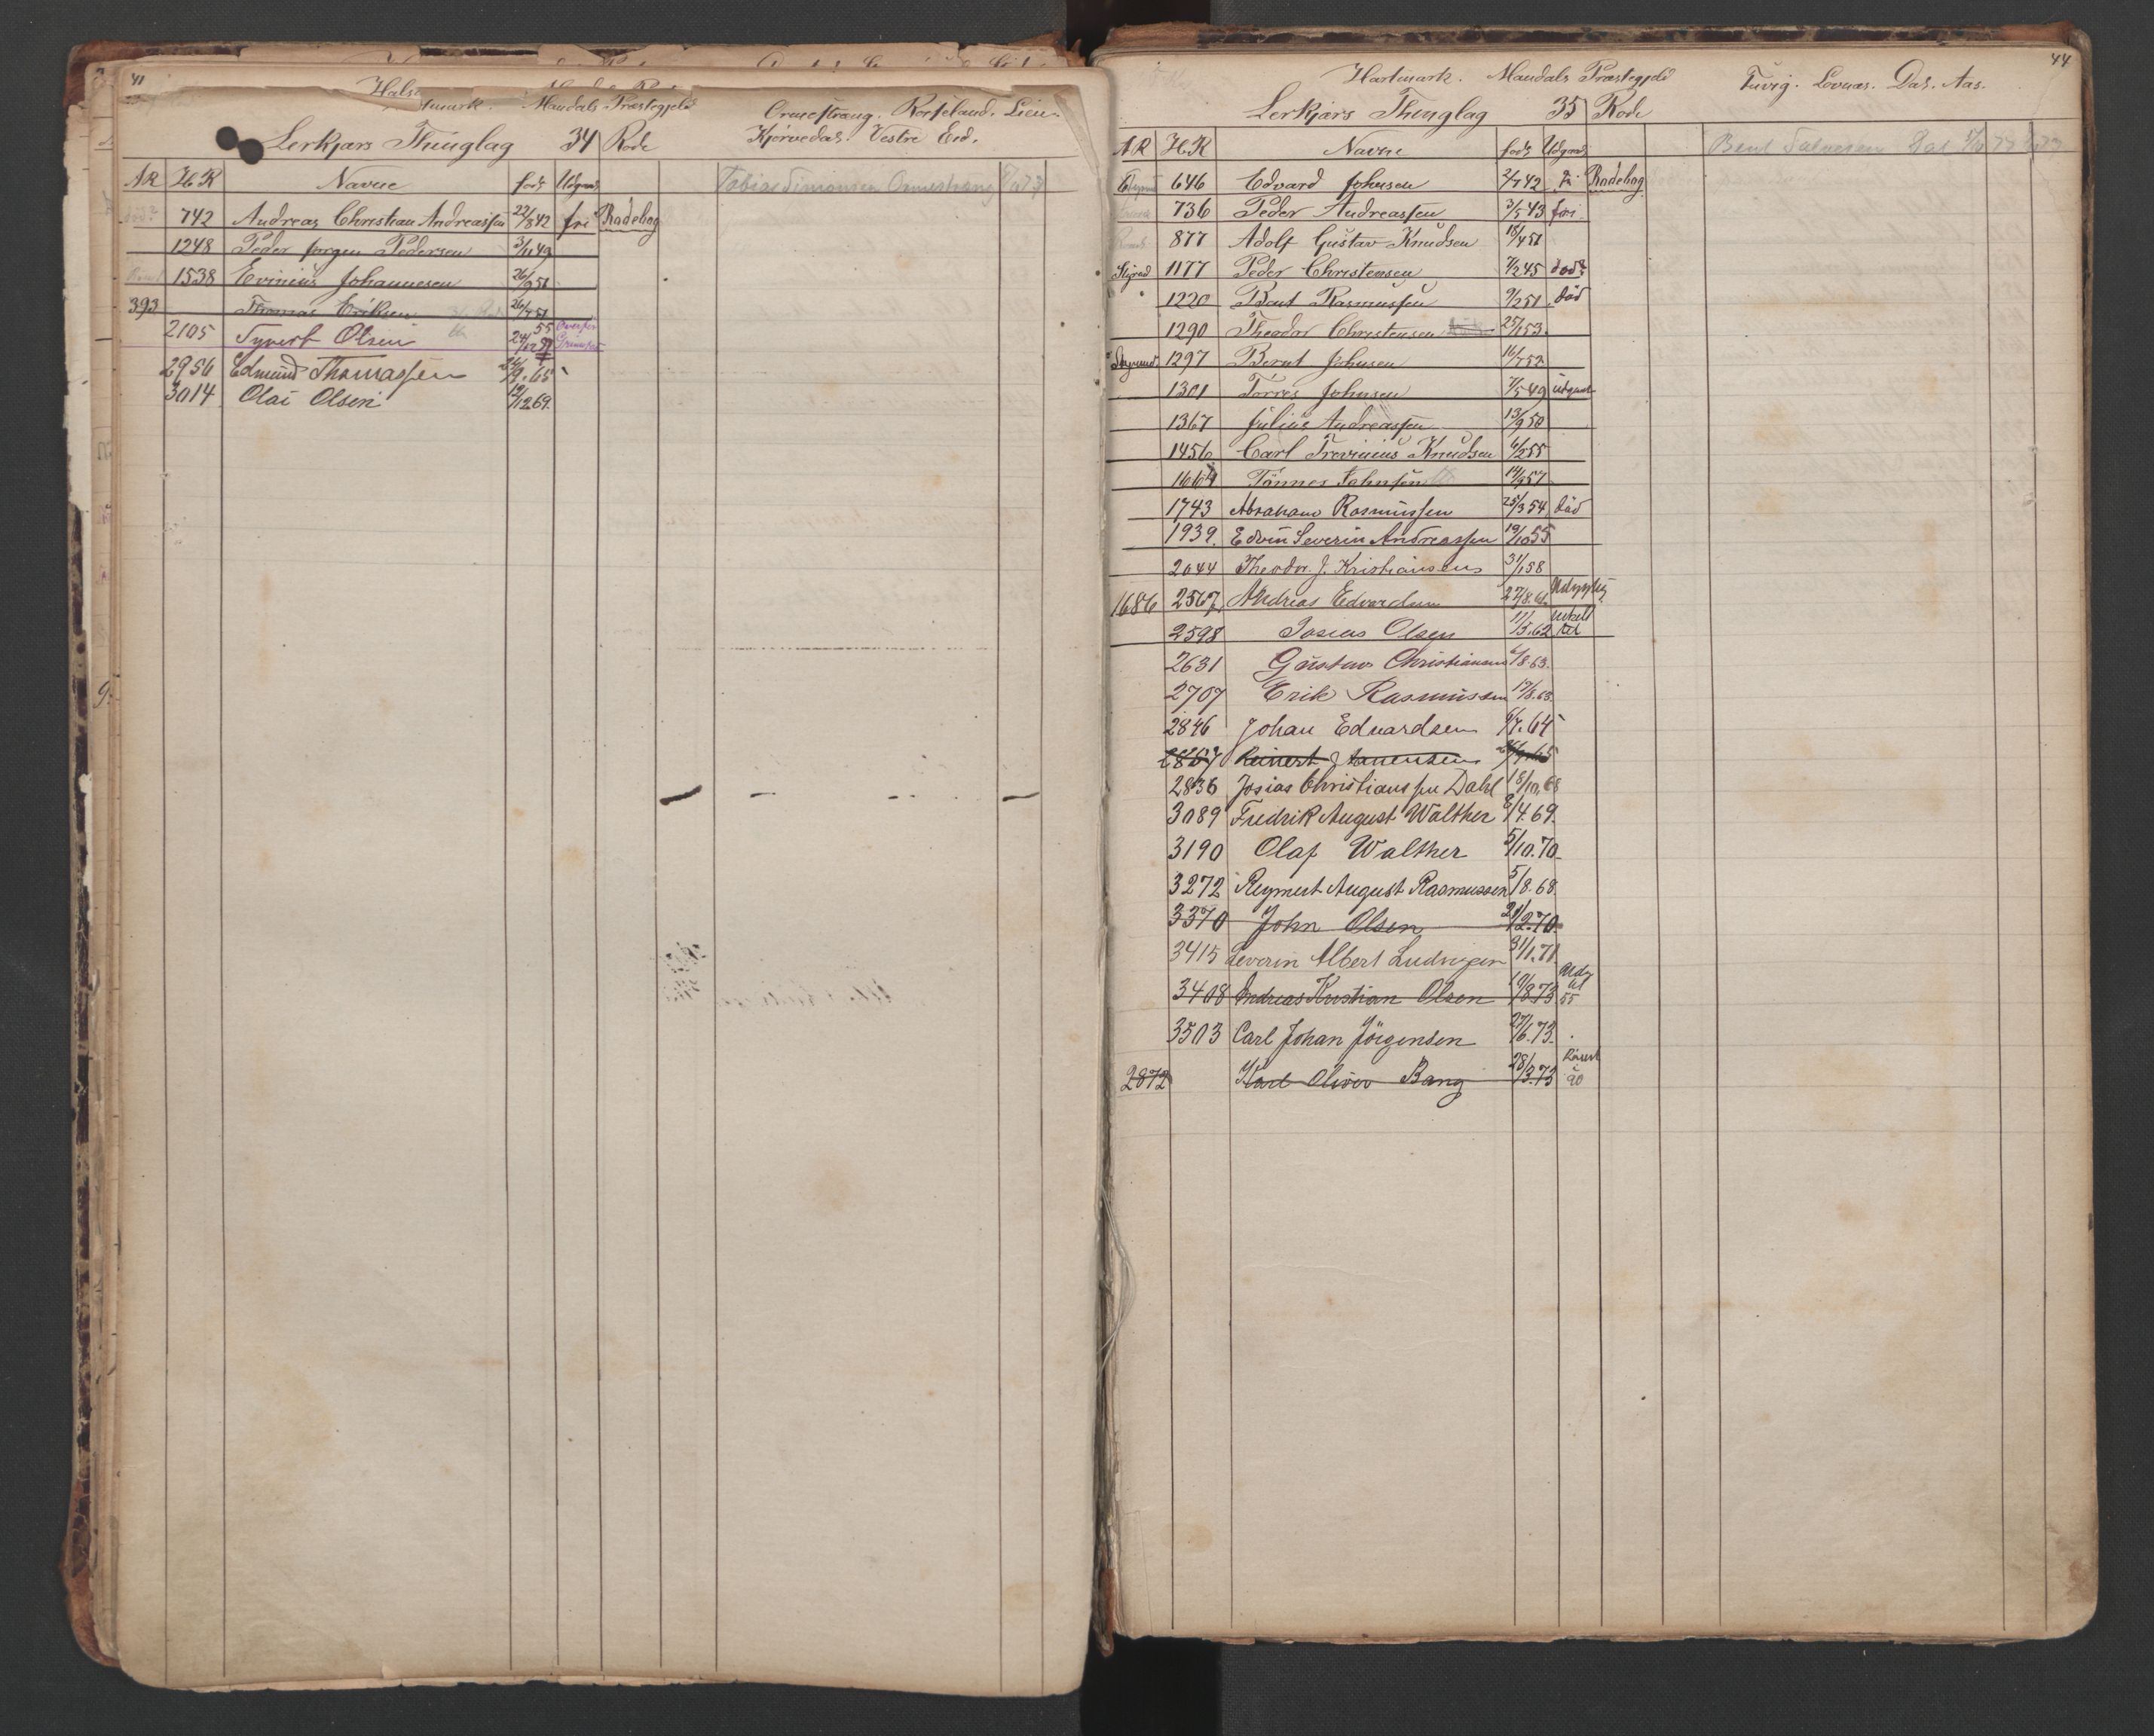 41
Hals
tmark. Mandals Præstegjeld
Ormestrang. Roseland. Lien.
Lerkjærs Thinglag 34 Rode
Kjørvedal. Vestre Eid.
AR HR Navne født Udgaaet
Tobias Simonsen Ormestrang
742 Andreas Christian Andreassen 22/8 42 fri Rodebog
1248 Peder Jørgen Pedersen 3/11 49
1538 Evinius Johannesen 26/9 51
393 Thomas Eriksen 26/7 51
2105 Syvert Olsen 24/12 55
2956 Edmund Thomassen 26/9.65
3014 Olai Olsen 12/12 69.
44
Hartmark. Mandals Præstegjeld
Tuvig. Lovnæs. Dal. Aas.
Lerkjærs Thinglag 35 Rode
AR HR Navne født Udgaaet
Bent Salvesen Dal
646 Edvard Johnsen 2/7 42 fri Rodebog
736 Peder Andreassen 3/5 43 fri
877 Adolf Gustav Knudsen 18/4 51
1177 Peder Christensen 7/2 45 død
1220 Bent Rasmussen 9/2 51 død
1290 Theodor Christensen 25/1 53
1297 Bernt Johnsen 16/7 52
1301 Tørres Johnsen 7/5 49 udgaaet
1367 Julius Andreassen 13/9 50
1456 Carl Trevinius Knudsen 6/2 55
1664 Tønnes Johnsen 14/9 57
1743 Abraham Rasmussen 25/3 54 død
1939. Edvin Severin Andreassen 19/10 55
2044 Theodor J. Kristiansen 31/1 58
1686 2567 Andreas Edvardsen 27/8.61
2598 Josias Olsen 11/5.62
2631 Gustav Christiansen 6/8 63.
2707 Erik Rasmussen 17/8.63
2846 Johan Edvardsen 6/7.64
2867 Reinert
2836 Josias Christianssen Dahl 18/10.68
3089 Fredrik August Walther 8/4.69.
3190 Olaf Walther 5/10.70.
3272 Reymert August Rasmussen 5/8.68.
3370 John Olsen 21/2.70.
3415 Severin Albert Ludvigsen 31/1.71
3408 Andreas Kristian Olsen 10/8 73 55
3503 Carl Johan Jörgensen 27/6.73.
2872 Karl Oliver Bang 28/3.73 90